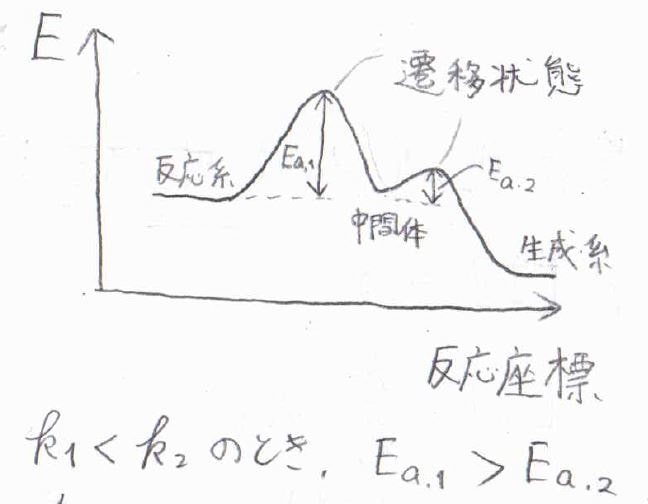 E
遷移状態
反応系
Ea,1
Ea.2
中間体
生成系
反応座標
k1 < k2 のとき、 Ea.1 > Ea.2